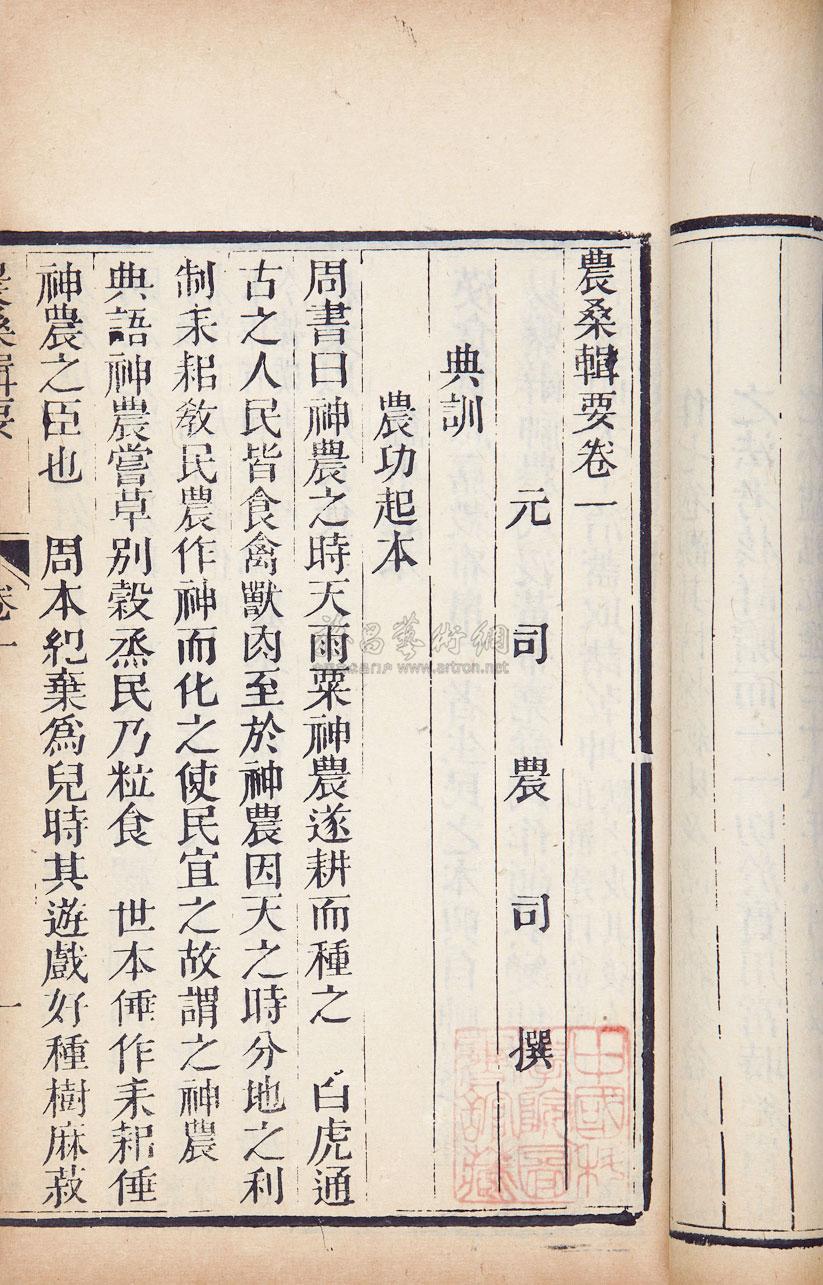 農桑輯要卷一
元司農司撰
典訓
農功起本
周書曰神農之時天雨粟神農遂耕而種之 白虎通
古之人民皆食禽獸肉至於神農因天之時分地之利
制耒耜敎民農作神而化之使民宜之故謂之神農
典語神農嘗草別穀烝民乃粒食 世本倕作耒耜倕
神農之臣也 周本紀棄爲兒時其遊戲好種樹麻菽
農桑輯要
卷一
一
雅昌藝術網
www.artron.net